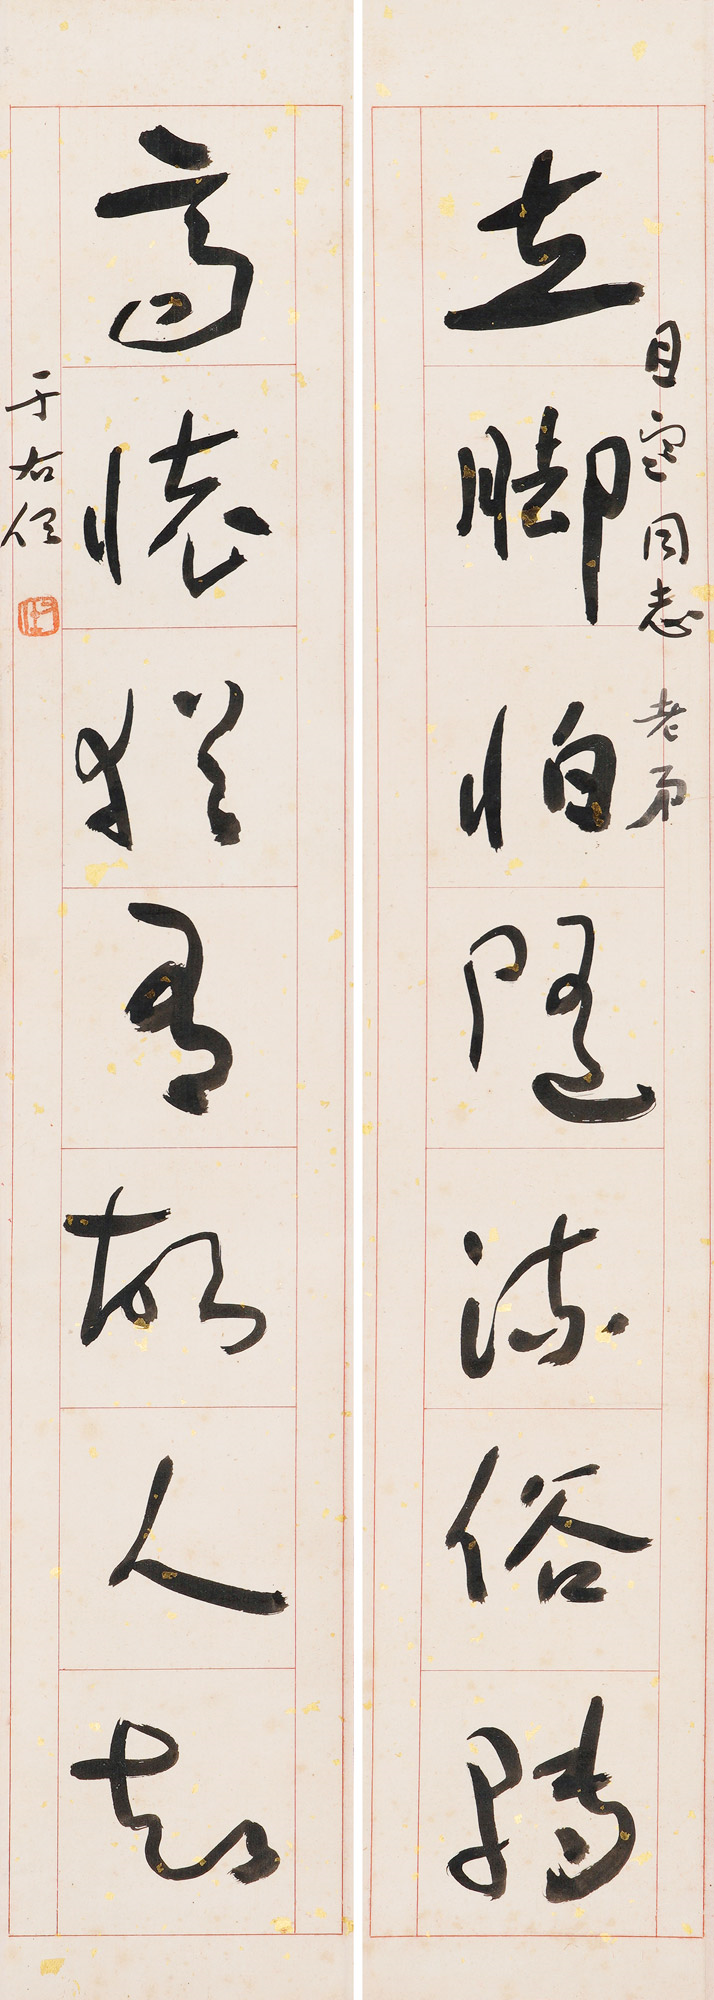 立脚怕随流俗转
目寒同志 老弟
高怀犹有故人知
于右任